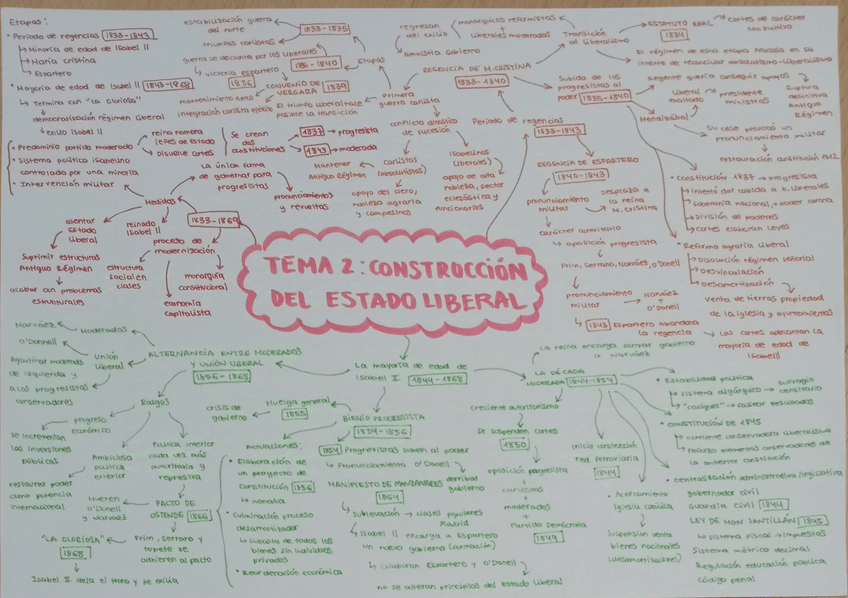 Etapas:
• Periodo de regencias 1833-1843
↳ Minoría de edad de Isabel II
↳ María Cristina
↳ Espartero
• Mayoría de edad de Isabel II 1843-1868
↳ Termina con "La Gloriosa"
democratización régimen liberal
↳ exilio Isabel II
• Predominio partido moderado
• Sistema político isabelino
controlado por una minoría
• Intervención militar
reina nombra
jefes de estado
disuelve cortes
Se crean
dos
constituciones
1837 → progresista
1845 → moderada
La única forma
de gobernar para
progresistas
pronunciamientos
y revueltas
estabilización guerra
del norte
triunfos carlistas
1833-1835
guerra se decanta por los liberales
↳ victoria Espartero
1836
1836-1840
Etapas
CONVENIO DE
VERGARA 1839
mantenimiento fueros
integración carlista ejército
El triunfo liberal hace
posible la transición
Primera
guerra carlista
conflicto dinástico
de sucesión
Carlistas
(absolutistas)
Mantener
Antiguo Régimen
apoyo del clero,
nobleza agraria
y campesinos
Isabelinos
(liberales)
apoyo de alta
nobleza, sector
eclesiástico y
funcionarios
regresan
del exilio
amnistía gobierno
monárquicos reformistas
+
liberales moderados
Transición
al liberalismo
REGENCIA DE M. CRISTINA
1833-1840
ESTATUTO REAL
1834
→ cortes de carácter
consultivo
El régimen de esta etapa fracasa en su
intento de reconciliar absolutismo-liberalismo
Subida de los
progresistas al
poder
1835-1840
Regente quería conseguir apoyos
Mendizábal
liberal
exaltado
presidente
ministros
Ruptura
definitiva
Antiguo
Régimen
Su cese provocó un
pronunciamiento militar
restauración constitución 1812
• Constitución 1837 → Progresista
↳ Intentó dar cabida a L. Liberales
↳ Soberanía nacional, + poder corona
↳ División de poderes
↳ Cortes elaboran leyes
• Reforma agraria liberal
↳ Disolución régimen señorial
↳ Desvinculación
↳ Desamortización
venta de tierras propiedad
de la iglesia y ayuntamientos
Periodo de regencias
1833-1843
REGENCIA DE ESPARTERO
1840-1843
pronunciamiento
militar
desplaza a
la reina
M. Cristina
carácter autoritario
↳ oposición progresista
Prim, Serrano, Narváez, O'Donell
pronunciamiento
militar
Narváez
+
O'Donell
1843 Espartero abandona
la regencia
↳ Las cortes adelantan la
mayoría de edad de
Isabel II
1833-1869
Medidas
asentar
Estado
Liberal
reinado
Isabel II
Suprimir estructuras
Antiguo Régimen
acabar con problemas
estructurales
proceso de
modernización
estructura
social en
clases
economía
capitalista
monarquía
constitucional
TEMA 2: CONSTRUCCIÓN
DEL ESTADO LIBERAL
ALTERNANCIA ENTRE MODERADOS
Y UNIÓN LIBERAL
1856-1868
Moderados
Narváez
Unión
Liberal
O'Donell
Aglutinar moderados
de izquierda y
a los progresistas
conservadores
Rasgos
progreso
económico
se incrementan
las inversiones
públicas
Ambiciosa
política
exterior
restaurar poder
como potencia
internacional
Política interior
cada vez más
autoritaria y
represiva
PACTO DE
OSTENDE 1866
Mueren
O'Donell
y Narváez
Prim, Serrano y
Topete se
adhieren al pacto
"LA GLORIOSA"
1868
Isabel II deja el trono y se exilia
La mayoría de edad de
Isabel II. 1844-1868
BIENIO PROGRESISTA
1854-1856
Huelga general
1855
crisis de
gobierno
1854 Progresistas suben al poder
↳ Pronunciamiento O'Donell
derribar
gobierno
MANIFIESTO DE MANZANARES
1854
↳ Sublevación → clases populares
Madrid
↳ Isabel II encarga a Espartero
un nuevo gobierno (formación)
↳ Colaboran Espartero y O'Donell
no se alteran principios del Estado Liberal
Actuaciones:
• Elaboración de
un proyecto de
constitución 1856
↳ nonata
• Culminación proceso
desamortizador
↳ subasta de todos los
bienes sin individuos
privados
• Reordenación económica
LA DÉCADA
MODERADA 1844-1854
La reina encarga formar gobierno
a Narváez
creciente autoritarismo
Se suspenden cortes
1850
oposición progresista
+
carlistas
+
moderados
+
Partido Demócrata
1849
Inicio construcción
red ferroviaria
1844
• Acercamiento
Iglesia católica
Suspensión venta
bienes nacionales
(desamortizadores)
• Estabilidad política
↳ sistema oligárquico
sufragio
censitario
↳ "caciques" → falsear resultados
• CONSTITUCIÓN DE 1845
↳ corriente conservadora liberalismo
↳ rechazo elementos renovadores de
la anterior constitución
• Centralización administrativa/legislativa
gobernador civil
guardia civil 1844
LEY DE MON SANTILLÁN 1845
↳ sistema fiscal → impuestos
Sistema métrico decimal
Regulación educación pública
Código penal